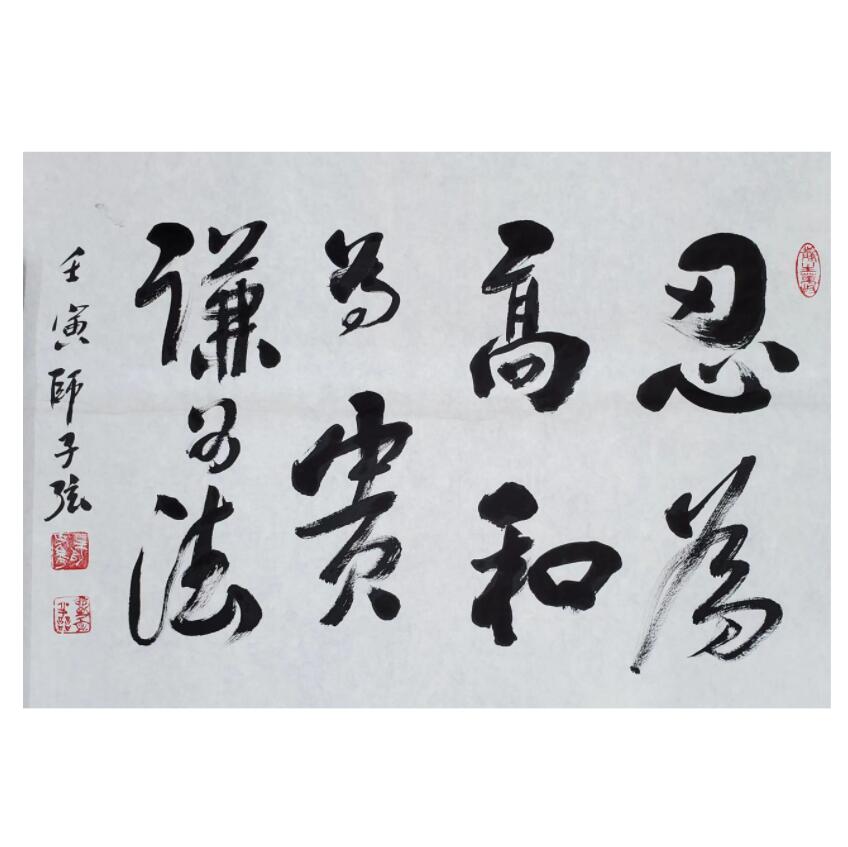 忍為
高和
為貴
謙為法
壬寅師子弦